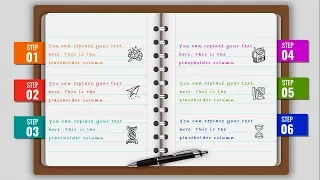 STEP
01
You can replace your text
here. This is the
placeholder column.
STEP
02
You can replace your text
here. This is the
placeholder column.
STEP
03
You can replace your text
here. This is the
placeholder column.
You can replace your text
here. This is the
placeholder column.
STEP
04
You can replace your text
here. This is the
placeholder column.
STEP
05
You can replace your text
here. This is the
placeholder column.
STEP
06